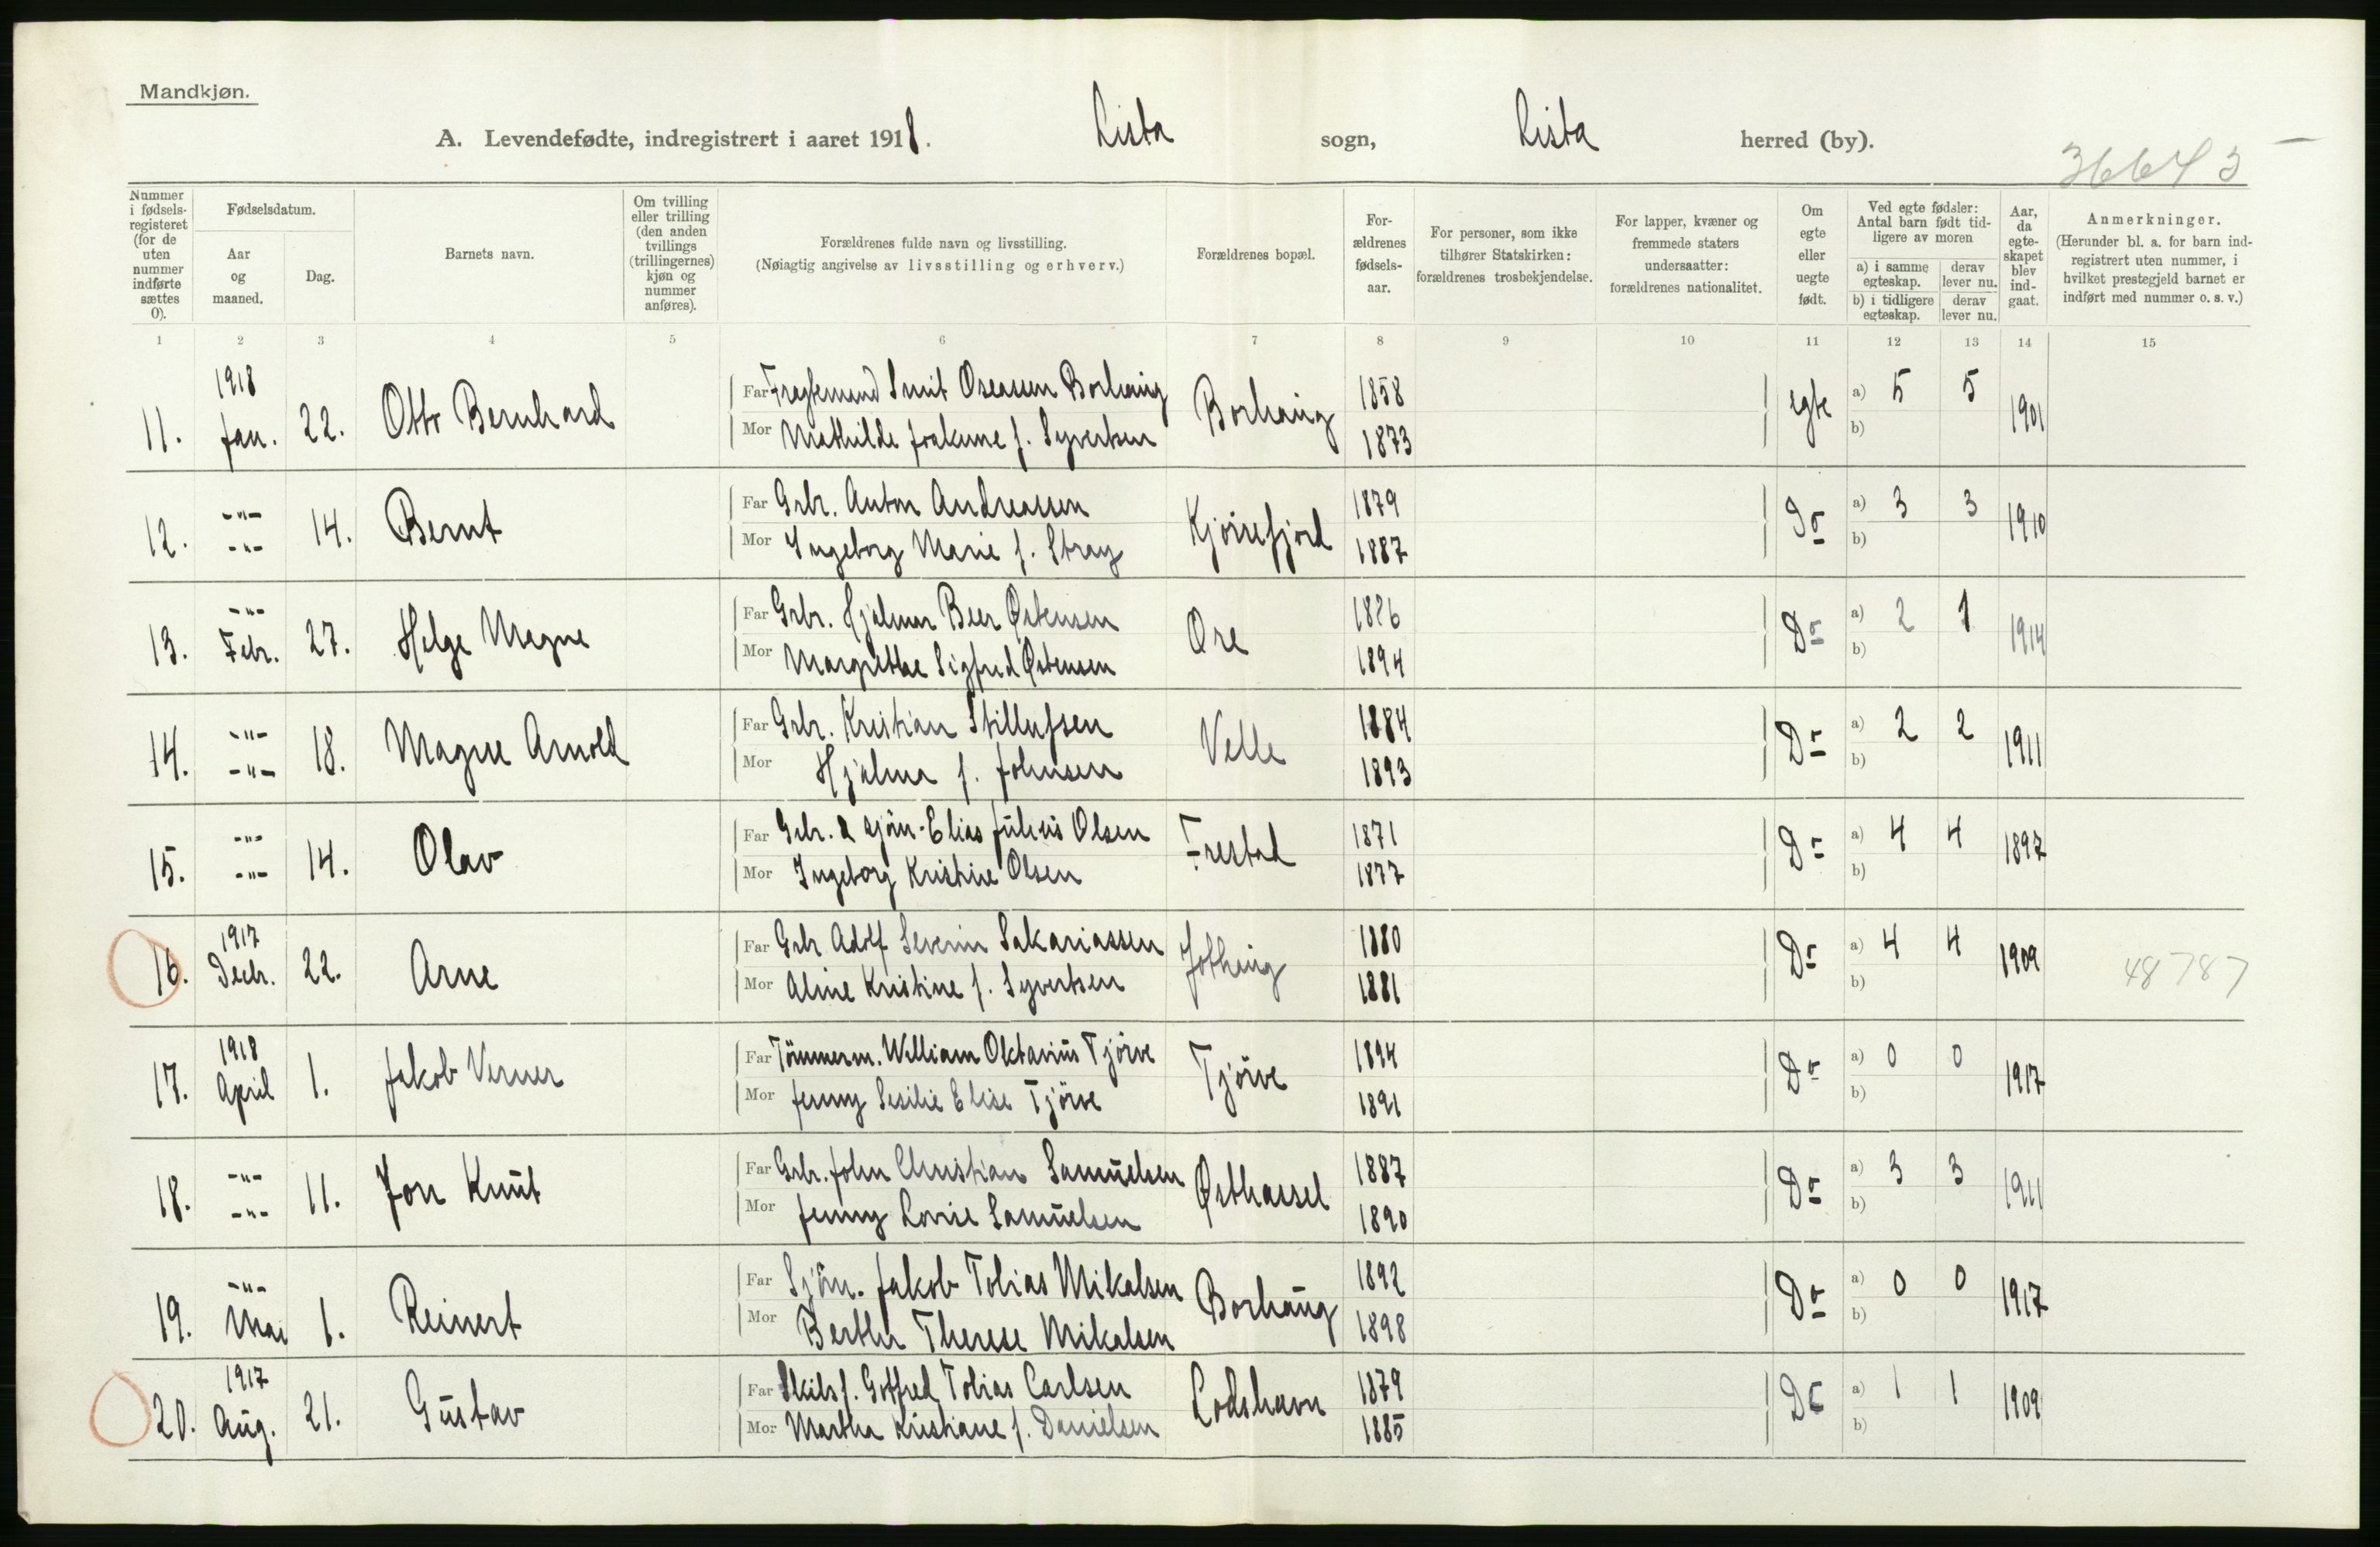 Mandkjøn.
A. Levendefødte, indregistrert i aaret 1918. Lista sogn, Lista herred (by).
36643
Nummer i fødsels-registeret (for de uten nummer indførte sættes 0).
Fødselsdatum.
Aar og maaned.
Dag.
Barnets navn.
Om tvilling eller trilling (den anden tvillings (trillingernes) kjøn og nummer anføres).
Forældrenes fulde navn og livsstilling.
(Nøiagtig angivelse av livsstilling og erhverv.)
Forældrenes bopæl.
For-ældrenes fødsels-aar.
For personer, som ikke tilhører Statskirken: forældrenes trosbekjendelse.
For lapper, kvæner og fremmede staters undersaatter: forældrenes nationalitet.
Om egte eller uegte født.
Ved egte fødsler: Antal barn født tid-ligere av moren
a) i samme egteskap. derav lever nu.
b) i tidligere egteskap. derav lever nu.
Aar, da egte-skapet blev ind-gaat.
Anmerkninger.
(Herunder bl. a. for barn ind-registrert uten nummer, i hvilket prestegjeld barnet er indført med nummer o. s. v.)
1 2 3 4 5 6 7 8 9 10 11 12 13 14 15
11. 1918 Jan. 22. Otto Bernhard Far Fragtemand Smit Oseassen Borhaug Borhaug 1858 egte a) 5 5 1901
Mor Mathilde Joakime f. Syvertsen 1873 b)
12. -"- -"- 14. Bernt Far Grbr. Anton Andreassen Kjørrefjord 1879 Do a) 3 3 1910
Mor Ingeborg Marie f. Stray 1887 b)
13. -"- Febr. 27. Helge Magne Far Grbr. Hjalmar Beer Østensen Ore 1886 Do a) 2 1 1914
Mor Margrethe Sigfred Østensen 1894 b)
14. -"- -"- 18. Magne Arnold Far Grbr. Kristian Stillufsen Velle 1884 Do a) 2 2 1911
Mor Hjalma f. Johnsen 1893 b)
15. -"- -"- 14. Olav Far Grbr. & sjøm. Elias Julius Olsen Frestad 1871 Do a) 4 4 1897
Mor Ingeborg Kristine Olsen 1877 b)
16. 1917 Decbr. 22. Arne Far Grbr Adolf Severin Sakariassen Jølleug 1880 Do a) 4 4 1909 48787
Mor Aline Kristine f. Syvertsen 1881 b)
17. 1918 April 1. Jakob Verner Far Tømmerm. William Oktavius Tjørve Tjørve 1894 Do a) 0 0 1917
Mor Jenny Sesilie Elise Tjørve 1891 b)
18. -"- -"- 11. Jon Knut Far Grbr. John Christian Samuelsen Østhassel 1887 Do a) 3 3 1911
Mor Jenny Lovise Samuelsen 1890 b)
19. -"- Mai 1. Reinert Far Sjøm. Jakob Tobias Mikalsen Borhaug 1892 Do a) 0 0 1917
Mor Berthe Therese Mikalsen 1898 b)
20. 1917 Aug. 21. Gustav Far Skibsf. Gotfred Tobias Carlsen Lodshavn 1879 Do a) 1 1 1909
Mor Martha Kristiane f. Danielsen 1885 b)